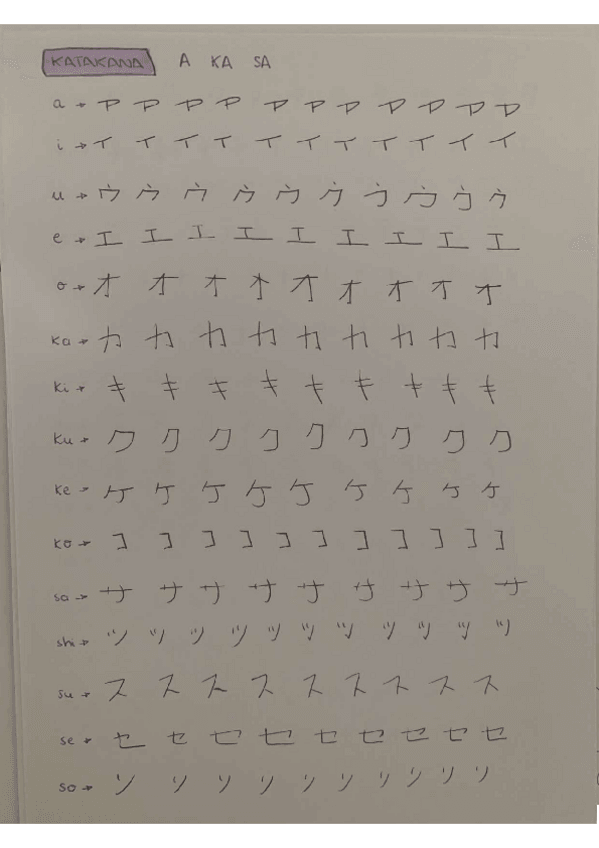 KATAKANA A KA SA
a → ア ア ア ア ア ア ア ア ア ア ア
i → イ イ イ イ イ イ イ イ イ イ イ
u → ウ ウ ウ ウ ウ ウ ウ ウ ウ ウ
e → エ エ エ エ エ エ エ エ エ
o → オ オ オ オ オ オ オ オ オ
ka → カ カ カ カ カ カ カ カ カ
ki → キ キ キ キ キ キ キ キ キ
ku → ク ク ク ク ク ク ク ク ク
ke → ケ ケ ケ ケ ケ ケ ケ ケ ケ
ko → コ コ コ コ コ コ コ コ コ コ コ
sa → サ サ サ サ サ サ サ サ サ
shi → ツ ツ ツ ツ ツ ツ ツ ツ ツ ツ ツ
su → ス ス ス ス ス ス ス ス ス
se → セ セ セ セ セ セ セ セ セ
so → ソ ソ ソ ソ ソ ソ ソ ソ ソ ソ